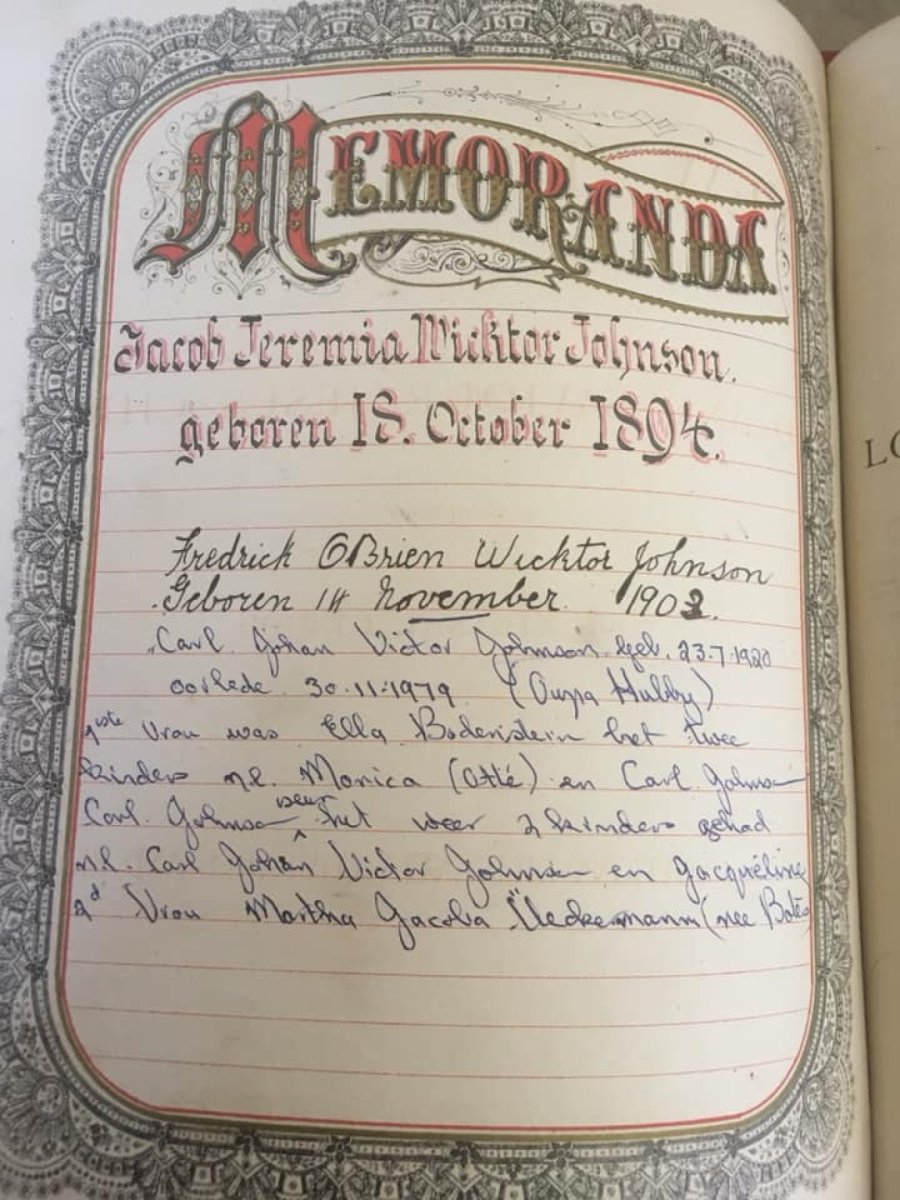 MEMORANDA
Jacob Jeremia Wicktor Johnson.
geboren 18. October 1894.
Fredrick OBrien Wicktor Johnson
Geboren 14 November 1902.
Carl Johan Victor Johnson geb. 23.7.1920
oorlede 30.11.1979 (Oupa Hubby)
1ste Vrou was Ella Bodenstein het twee
kinders nl. Monica (Otté) en Carl Johnson
Carl Johnson seun het weer 2 kinders gehad
nl. Carl Johan Victor Johnson en Jacquéline
2d Vrou Martha Jacoba Ueckermann (nee Botes
LO